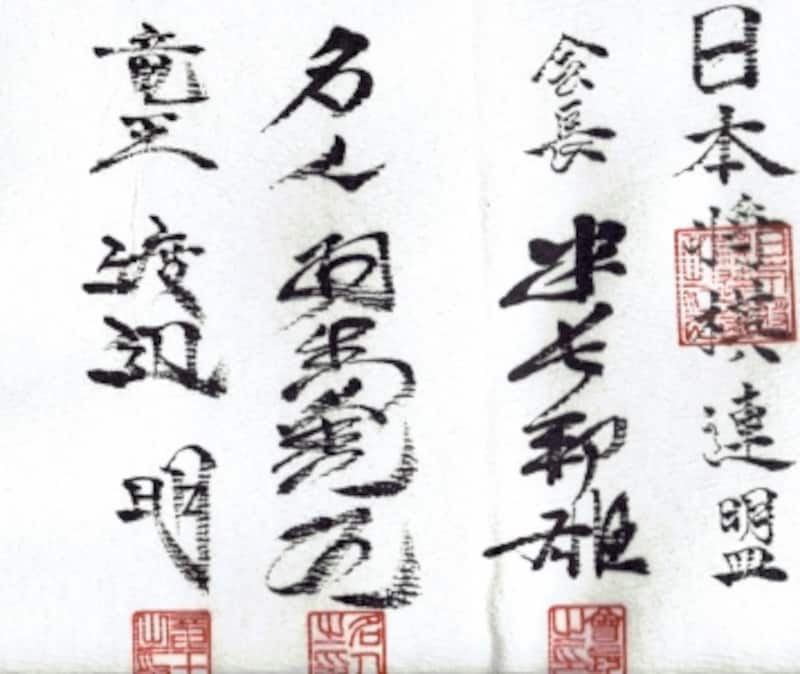 日本将棋連盟
会長 米長邦雄
名人 羽生善治
竜王 渡辺 明